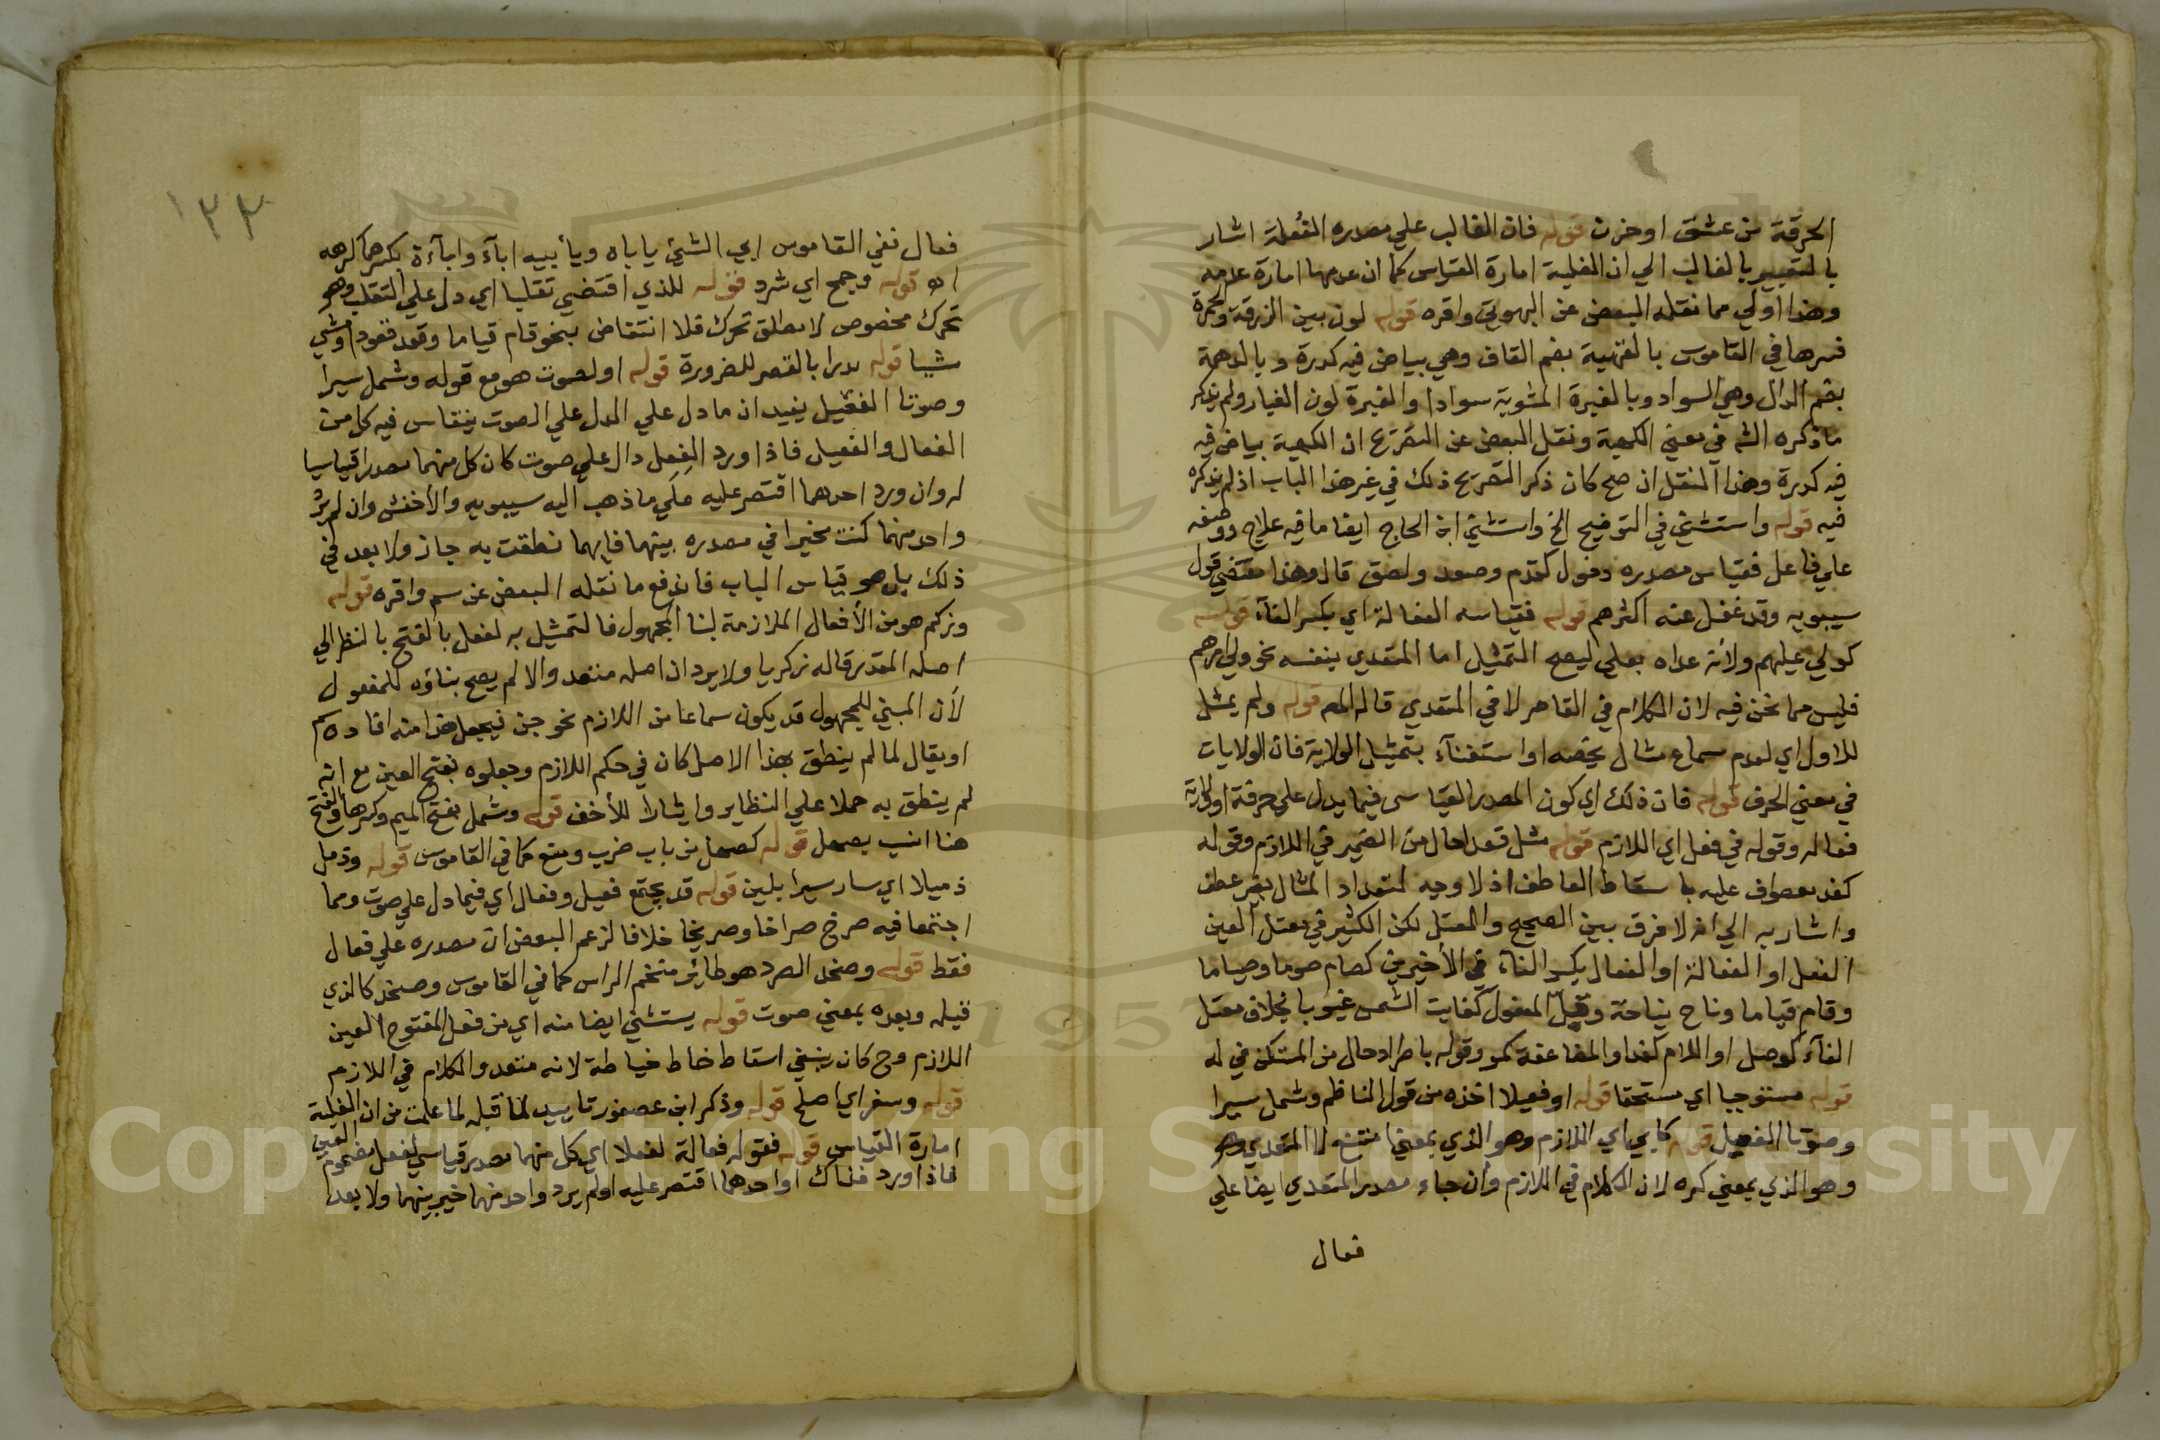 الحرقة من عشق او حزن قوله فان الغالب علي مصدره الفُعلة اشار
بالتعبير بالغالب الي ان الغلبة امارة القياس كما ان عدمها امارة عدمه
وهذا اولي مما نقله البعض عن البهوتي واقره قوله لون بين الزرقة والحمرة
فسرها في القاموس بالقهبة بضم القاف وهي بياض فيه كدرة وبالدهمة
بضم الدال وهي السواد وبالغبرة المشوبة سوادا والغبرة لون الغبار ولم يذكر
ما ذكره الش في معني الكهبة ونقل البعض عن المصرح ان الكهبة بياض فيه
فيه كدرة وهذا النقل ان صح كان ذكر المصرح ذلك في غير هذا الباب اذ لم يذكره
فيه قوله واستثني في التوضيح الخ واستثني ابن الحاج ايضا ما فيه علاج ووصفه
علي فاعل فقياس مصدره فعول كقدم وصعد ولصق قال وهذا مقتضي قول
سيبويه وقد غفل عنه اكثرهم قوله فقياسه الفعالة اي بكسر الفآء قوله
كولي عليهم ولانه عداه بعلي ليصح التمثيل اما المتعدي بنفسه نحو ولي امرهم
فليس مما نحن فيه لان الكلام في القاصر لا في المتعدي قاله المص قوله ولم يمثل
للاول اي لعدم سماع مثال يخصه او استغنآء بتمثيل الولاية فان الولايات
في معني الحرف قوله فان ذلك اي كون المصدر القياسي فيما يدل علي حرفة او ولاية
فعاله وقوله في فعل اي اللازم قوله مثل قعدا حال من الضمير في اللازم وقوله
كغدا معطوف عليه باسقاط العاطف اذ لا وجه لتعداد المثال بغير عطف
واشار به الي انه لا فرق بين الصحيح والمعتل لكن الكثير في معتل العين
الفعل او الفعالة او الفعال بكسر الفآء في الأخيرين كصام صوما وصياما
وقام قياما وناح نياحة وقلّ الفعول كغابت الشمس غيوبا بخلاف معتل
الفآء كوصل او اللام كغدا والمضاعف كمر وقوله باطراد حال من المستكن في له
قوله مستوجبا اي مستحقا قوله او فعيلا اخذه من قول الناظم وشمل سيرا
وصوتا الفعيل قوله كابي اي اللازم وهو الذي بمعني امتنع لا المتعدي وهو
وهو الذي بمعني كره لان الكلام في اللازم وان جاء مصدر المتعدي ايضا علي
فعال
١٣٣
فعال ففي القاموس ابي الشيئ ياباه ويأبيه ابآء وابآءة بكسرهما كرهه
اهـ قوله وجمح اي شرد قوله للذي اقتضي تقلبا اي دل علي التقلب وهو
تحرك مخصوص لا مطلق تحرك فلا انتقاض بنحو قام قياما وقعد قعودا ومشي
مشيا قوله بالقصر للضرورة قوله او لصوت هو مع قوله وشمل سيرا
وصوتا الفعيل يفيد ان ما دل علي الصوت ينقاس فيه كل من
الفعال والفعيل فاذا ورد الفعل دال علي صوت كان كل منهما مصدرا قياسيا
له وان ورد احدهما اقتصر عليه علي ما ذهب اليه سيبويه والأخفش وان لم يرد
واحد منهما كنت مخيرا في مصدره بينهما فايهما نطقت به جاز ولا بعد في
ذلك بل هو قياس الباب فاندفع ما نقله البعض عن سم واقره قوله
وزكم هو من الأفعال الملازمة لبنآ المجهول فالتمثيل به لفعل بالفتح بالنظر الي
اصله المقدر قاله زكريا ولا يرد ان اصله متعد والا لم يصح بناؤه للمفعول
لأن المبني للمجهول قد يكون سماعا من اللازم نحو جن فيجعل هذا منه افاده سم
او يقال لما لم ينطق بهذا الاصل كان في حكم اللازم وجعلوه بفتح العين مع انه
لم ينطق به حملا علي النظاير وايثارا للأخف قوله وشمل بفتح الميم وكسرها والفتح
هنا انسب بصهل قوله كصهل من باب ضرب ومنع كما في القاموس قوله وذمل
ذميلا اي سار سيرا بلين قوله قد يجتمع فعيل وفعال اي فيما دل علي صوت ومما
اجتمعا فيه صرخ صراخا وصريخا خلافا لزعم البعض ان مصدره علي فعال
فقط قوله وصخد الصرد هو طاير ضخم الراس كما في القاموس وصخد كالذي
قبله وبعده بمعني صوت قوله يستثني ايضا منه اي من فعل المفتوح العين
اللازم وح كان ينبغي اسقاط خاط خياطة لانه متعد والكلام في اللازم
قوله وسفر اي اصلح قوله وذكر ابن عصفور تاييد لما قبله لما علمت من ان الغلبة
امارة القياس قوله فقوله فعالة لفعلا اي كل منهما مصدر قياسي لفعل مضموم العين
فاذا ورد فذاك او احدهما اقتصر عليه او لم يرد واحد منهما خير بينهما ولا بعد